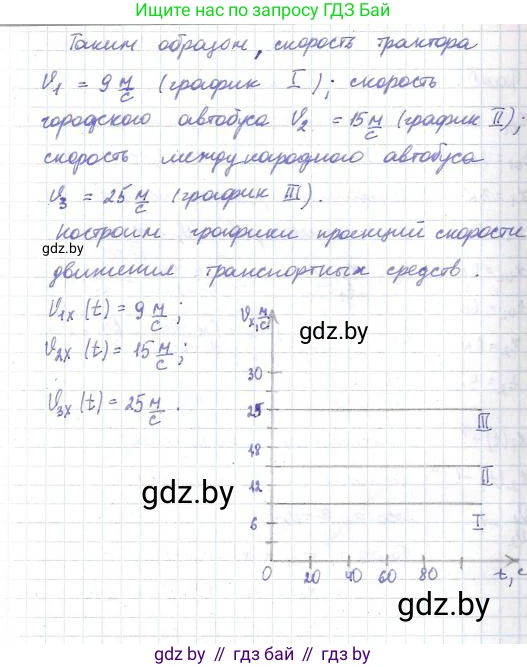 Ищите нас в поиске по запросу ГДЗ Бай
Таким образом, скорость трактора
υ₁ = 9 м/с (график I); скорость
городского автобуса υ₂ = 15 м/с (график II);
скорость международного автобуса
υ₃ = 25 м/с (график III).
gdz.by
Построим графики проекций скорости
движения транспортных средств.
υ₁ₓ(t) = 9 м/с;
υₓ, м/с
gdz.by
υ₂ₓ(t) = 15 м/с;
30
υ₃ₓ(t) = 25 м/с.
25
III
18
II
gdz.by
12
6
I
0 20 40 60 80 t, с
gdz.by
gdz.by // гдз бай // gdz.by